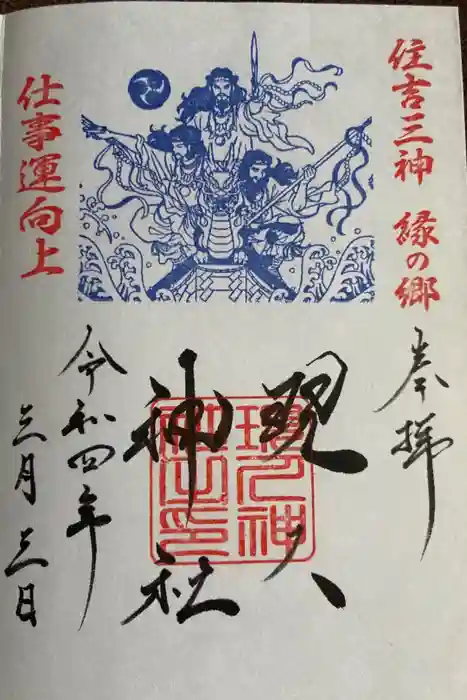 住吉三神 縁の郷
仕事運向上
奉拝
現人
神社
現人神
社之印
令和四年
三月三日